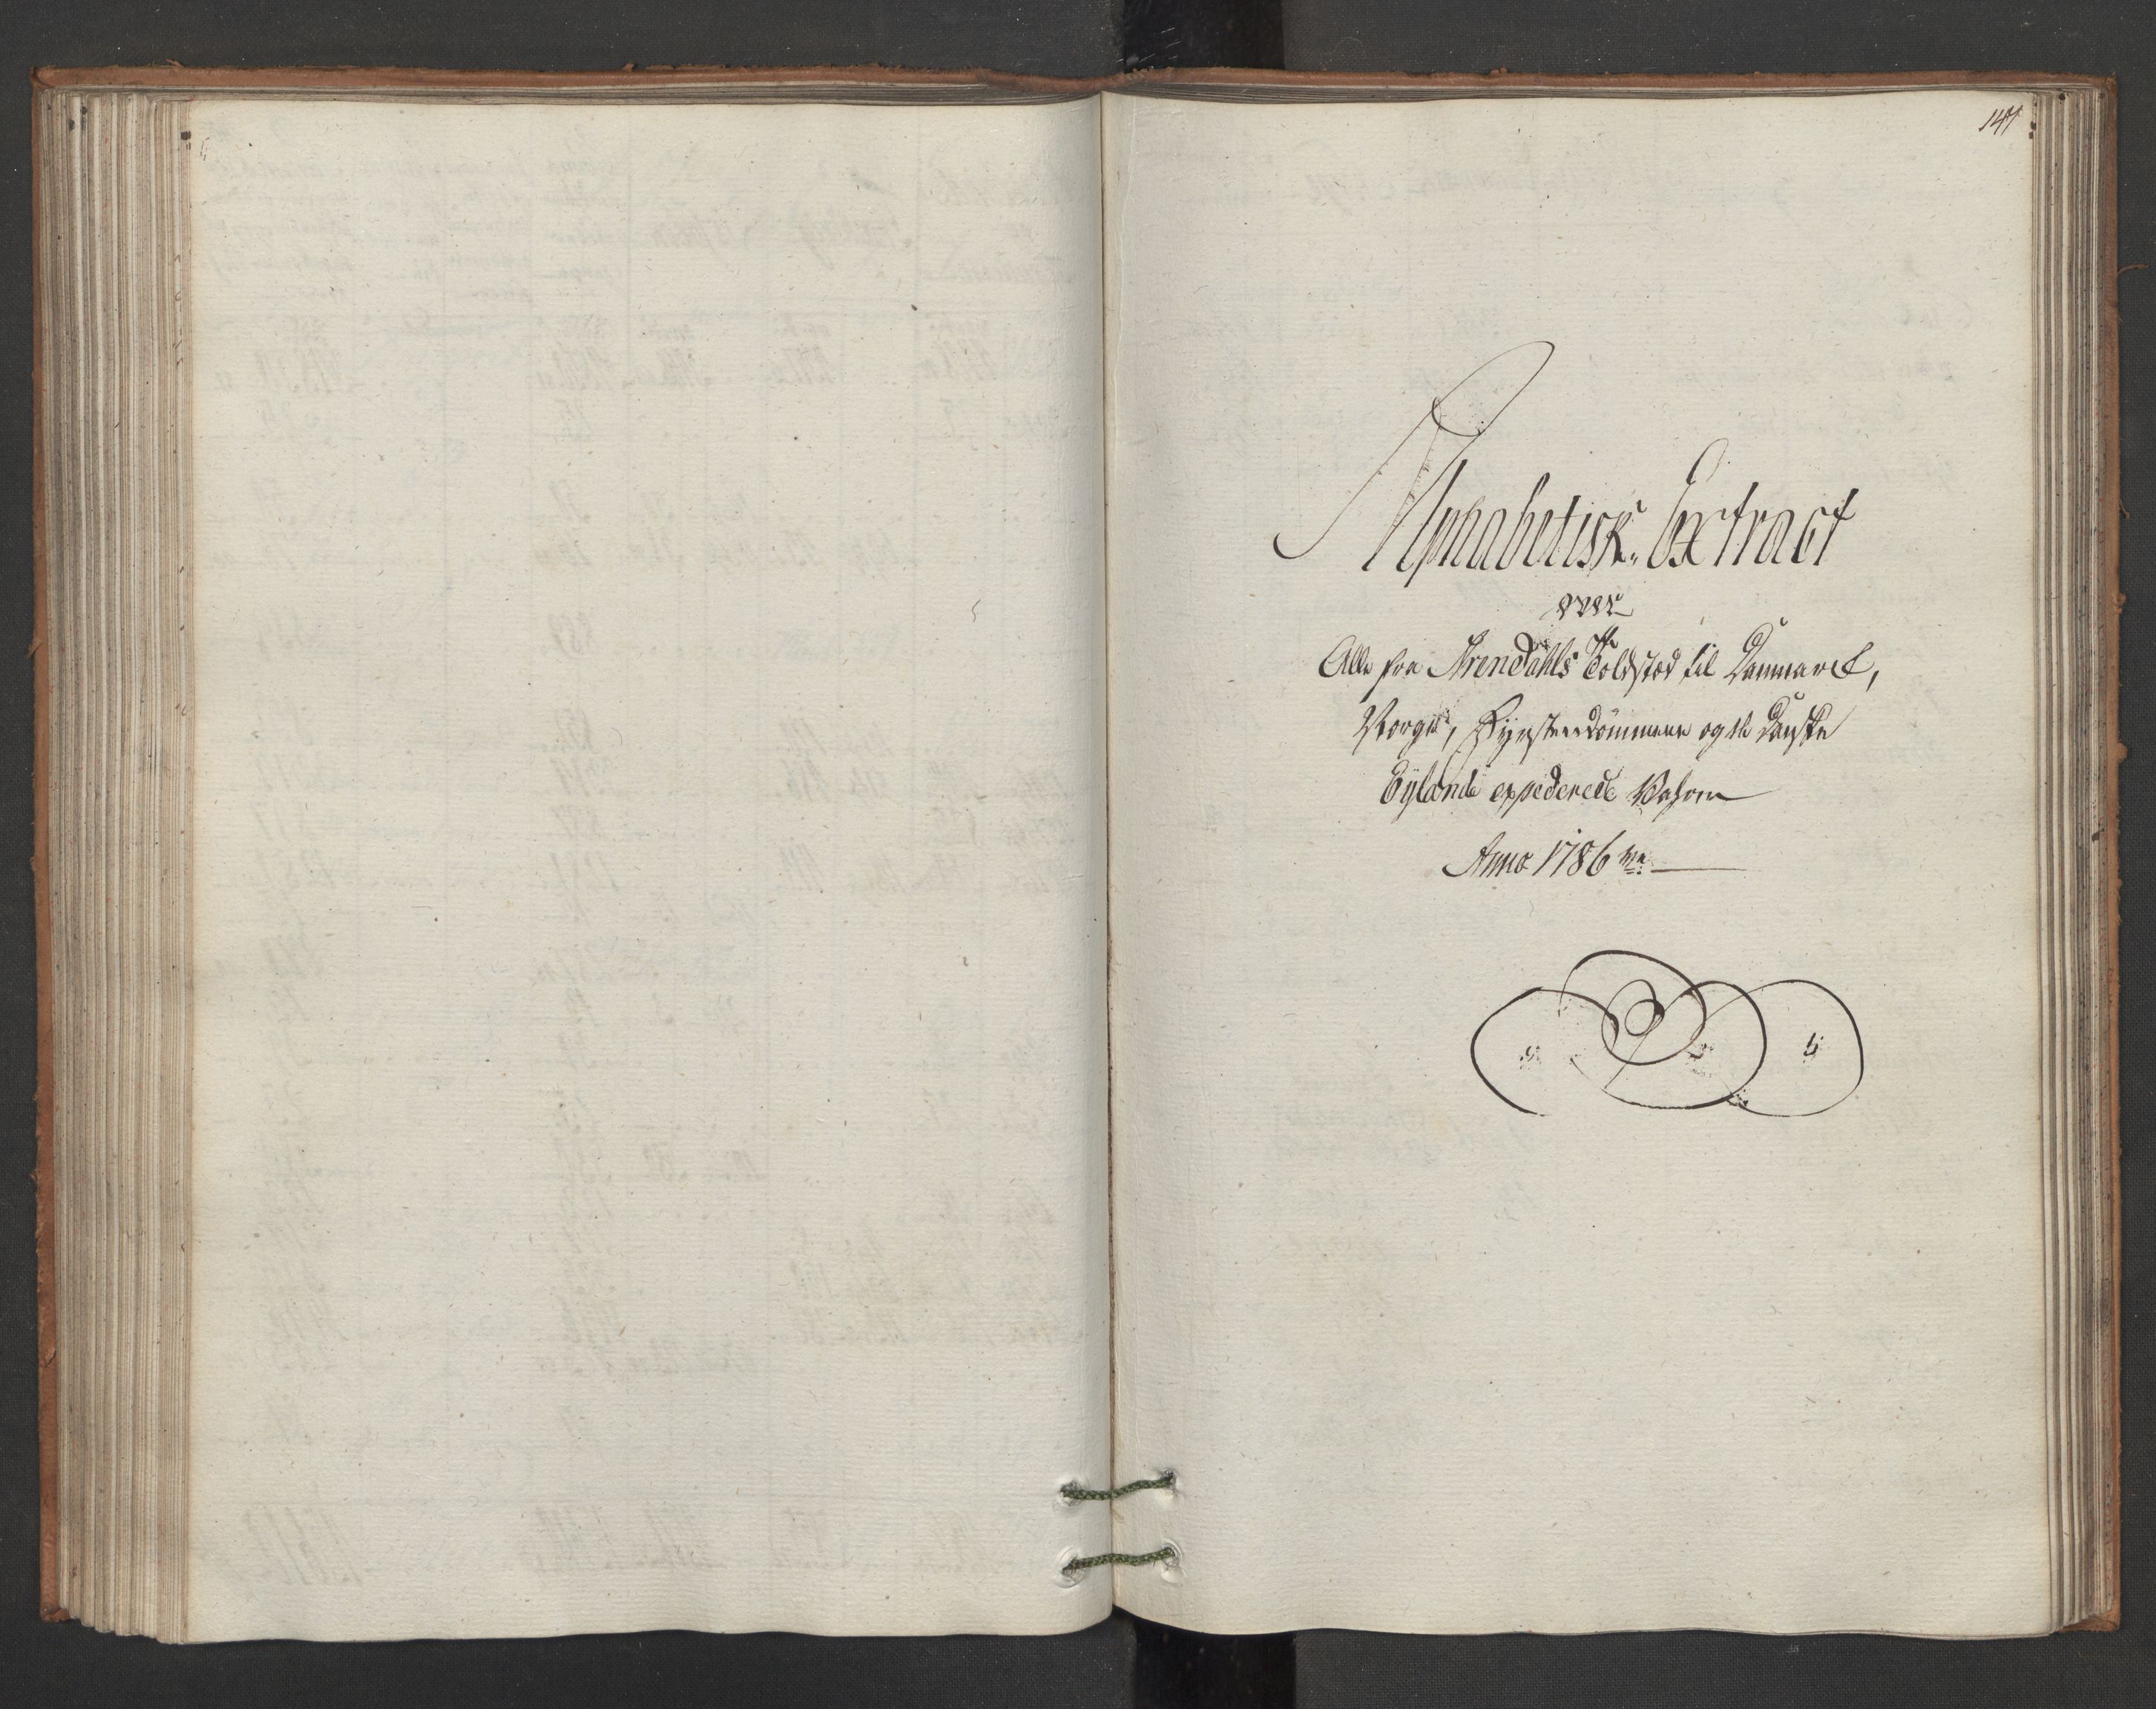 147
Alphabetisk Extract
over
Alle fra Arendahls Toldsted til Danmarck,
Norge, Fyrstendömmene og de Danske
Eylande expederede Vahrer
Anno 1786